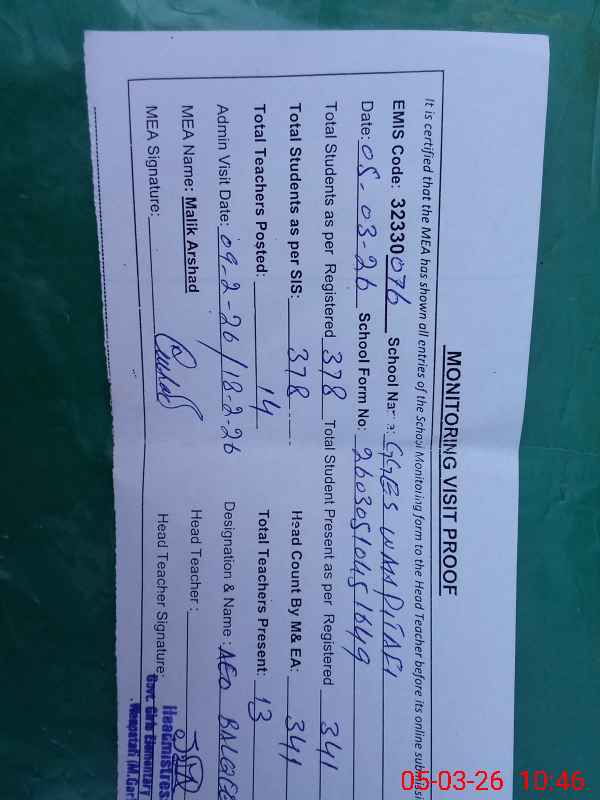 MONITORING VISIT PROOF
It is certified that the MEA has shown all entries of the School Monitoring form to the Head Teacher before its online submissi
EMIS Code: 32330076 School Name: GGES WAA PITAFI
Date: 05-03-26 School Form No: 2603051045 1649
Total Students as per Registered 378 Total Student Present as per Registered 341
Total Students as per SIS: 378 Head Count By M& EA: 341
Total Teachers Posted: 14 Total Teachers Present: 13
Admin Visit Date: 09-2-26/18-2-26 Designation & Name: AEO
MEA Name: Malik Arshad Head Teacher:
MEA Signature: Head Teacher Signature:
Headmistress
Govt. Girls Elementary
(M.Gar
05-03-26 10:46